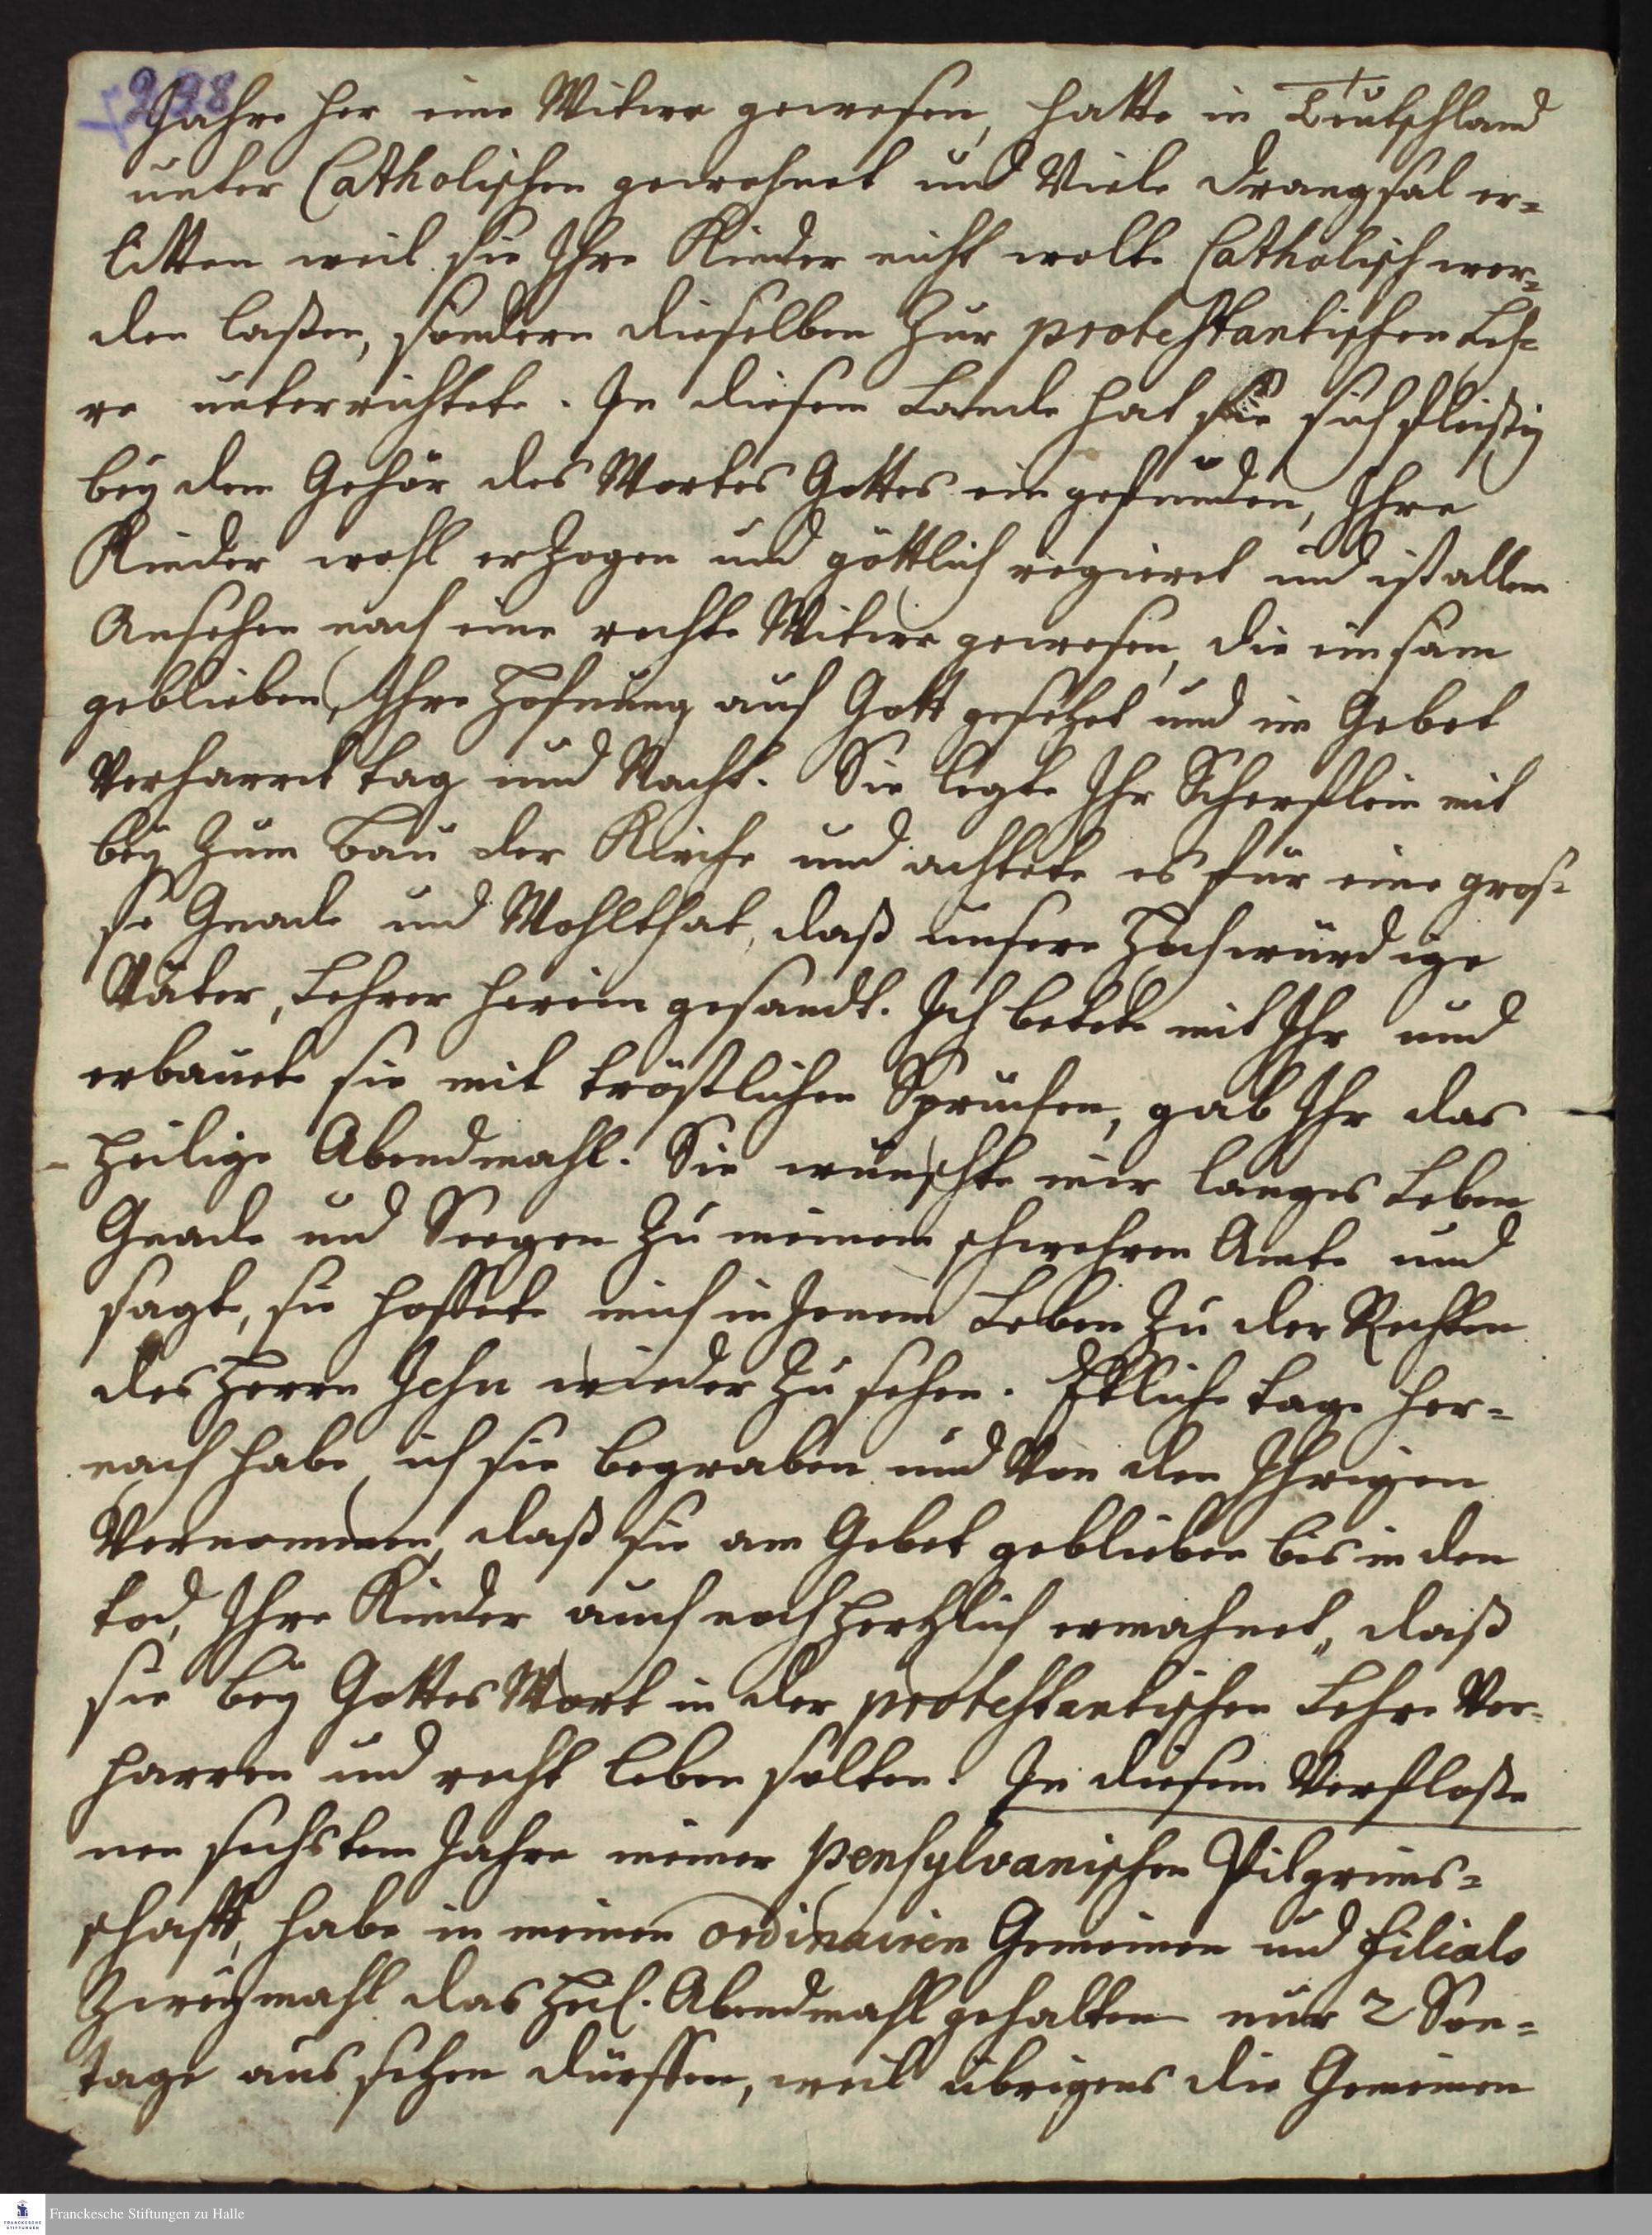 298
Jahre her eine Witwe gewesen, hatte in Teutschland
unter Catholischen gewohnet und Viele drangsal er=
litten weil sie Ihre Kinder nicht wolte Catholisch wer=
den laßen, sondern dieselben zur protestantischen Leh=
re unterrichtete. In diesem Lande hat sie sich fleißig
bey dem Gehör des Wortes Gottes eingefunden, Ihre
Kinder wohl erzogen und göttlich regieret und ist allem
Ansehen nach eine rechte Witwe gewesen, die einsam
geblieben, Ihre Hofnung auf Gott gesetzet und im Gebet
Verharret tag und Nacht. Sie legte Ihr Scherflein mit
bey zum Bau der Kirche und achtete es für eine gros=
se Gnade und Wohlthat, daß unsere Hochwürdige
Väter, Lehrer herein gesandt. Ich betete mit Ihr und
erbauete sie mit tröstlichen Sprüchen, gab Ihr das
Heilige Abendmahl. Sie wünschte mir langes Leben
Gnade und Seegen zu meinem schwehren Amte und
sagte, sie hoffete mich in Jenem Leben zu der Rechten
des Herrn Jesu wieder zu sehen. Etliche tage her=
nach habe ich sie begraben und Von den Ihrigen
Vernommen, daß sie am Gebet geblieben bis in den
tod, Ihre Kinder auch noch hertzlich ermahnet, daß
sie bey Gottes Wort in der protestantischen Lehre Ver=
harren und recht leben solten. In diesem Verfloße
nen sechstem Jahre meiner pensylvanischen Pilgrims=
schafft, habe in meinen ordinairen Gemeinen und filials
Zweymahl das Heil. Abendmahl gehalten nur 2 Son=
tage aus sehen dürffen, weil übrigens die Gemeinen
Franckesche Stiftungen zu Halle
FRANCKESCHE
STIFTUNGEN